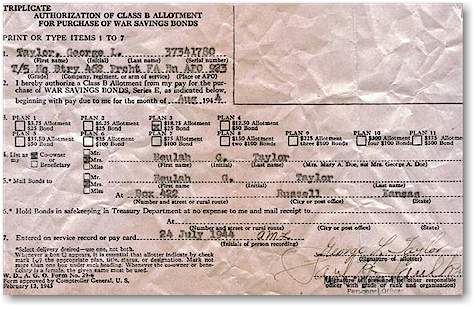 TRIPLICATE
AUTHORIZATION OF CLASS B ALLOTMENT
FOR PURCHASE OF WAR SAVINGS BONDS
PRINT OR TYPE ITEMS 1 TO 7
1. Taylor, George L. 37341780
(First name) (Initial) (Last name) (Serial number)
T/5 Hq Btry 462 Prcht FA Bn APO 923
(Grade) (Company, regiment, or arm of service) (Place or APO)
2. I hereby authorize a Class B Allotment from my pay for the pur-
chase of WAR SAVINGS BONDS, Series E, as indicated below,
beginning with pay due to me for the month of Aug 1944
3. PLAN 1 PLAN 2 PLAN 3 PLAN 4
$3.75 Allotment $6.25 Allotment $18.75 Allotment $12.50 Allotment
$25 Bond $25 Bond $25 Bond $50 Bond
$37.50 Allotment $75 Allotment $225 Allotment $300 Allotment $375 Allotment
$50 Bond $100 Bond three $100 Bonds four $100 Bonds $500 Bond
4. List as Co-owner or Beneficiary Mrs. Miss Beulah G. Taylor
(First name) (Initial) (Last name) (Mrs. Mary A. Doe, not Mrs. George A. Doe)
5.* Mail Bonds to Mrs. Miss Beulah G. Taylor
(First name) (Initial) (Last name)
At Box 422 Russell Kansas
(Number and street or rural route) (City or post office) (State)
6.* Hold Bonds in safekeeping in Treasury Department at no expense to me and mail receipt to
At
(Number and street or rural route) (City or post office) (State)
7. Entered on service record or pay card 24 July 1944
(Initials of person recording)
*Select delivery desired—use one, not both.
Whenever a box appears, it is essential that allotter indicate by check
mark the appropriate plan, title, status, or designation. Mark not
more than one box under each heading. Whenever the co-owner or bene-
ficiary is a female, the given name must be used.
(Signature of allotter)
W. D., A. G. O. Form No. 29-6
Form approved by Comptroller General, U. S.
February 13, 1943
officer with grade or rank and organization)
Personnel Officer